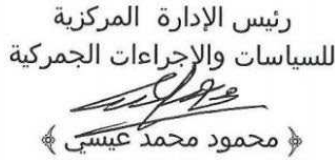 رئيس الإدارة المركزية
للسياسات والإجراءات الجمركية
﴿ محمود محمد عيسى ﴾